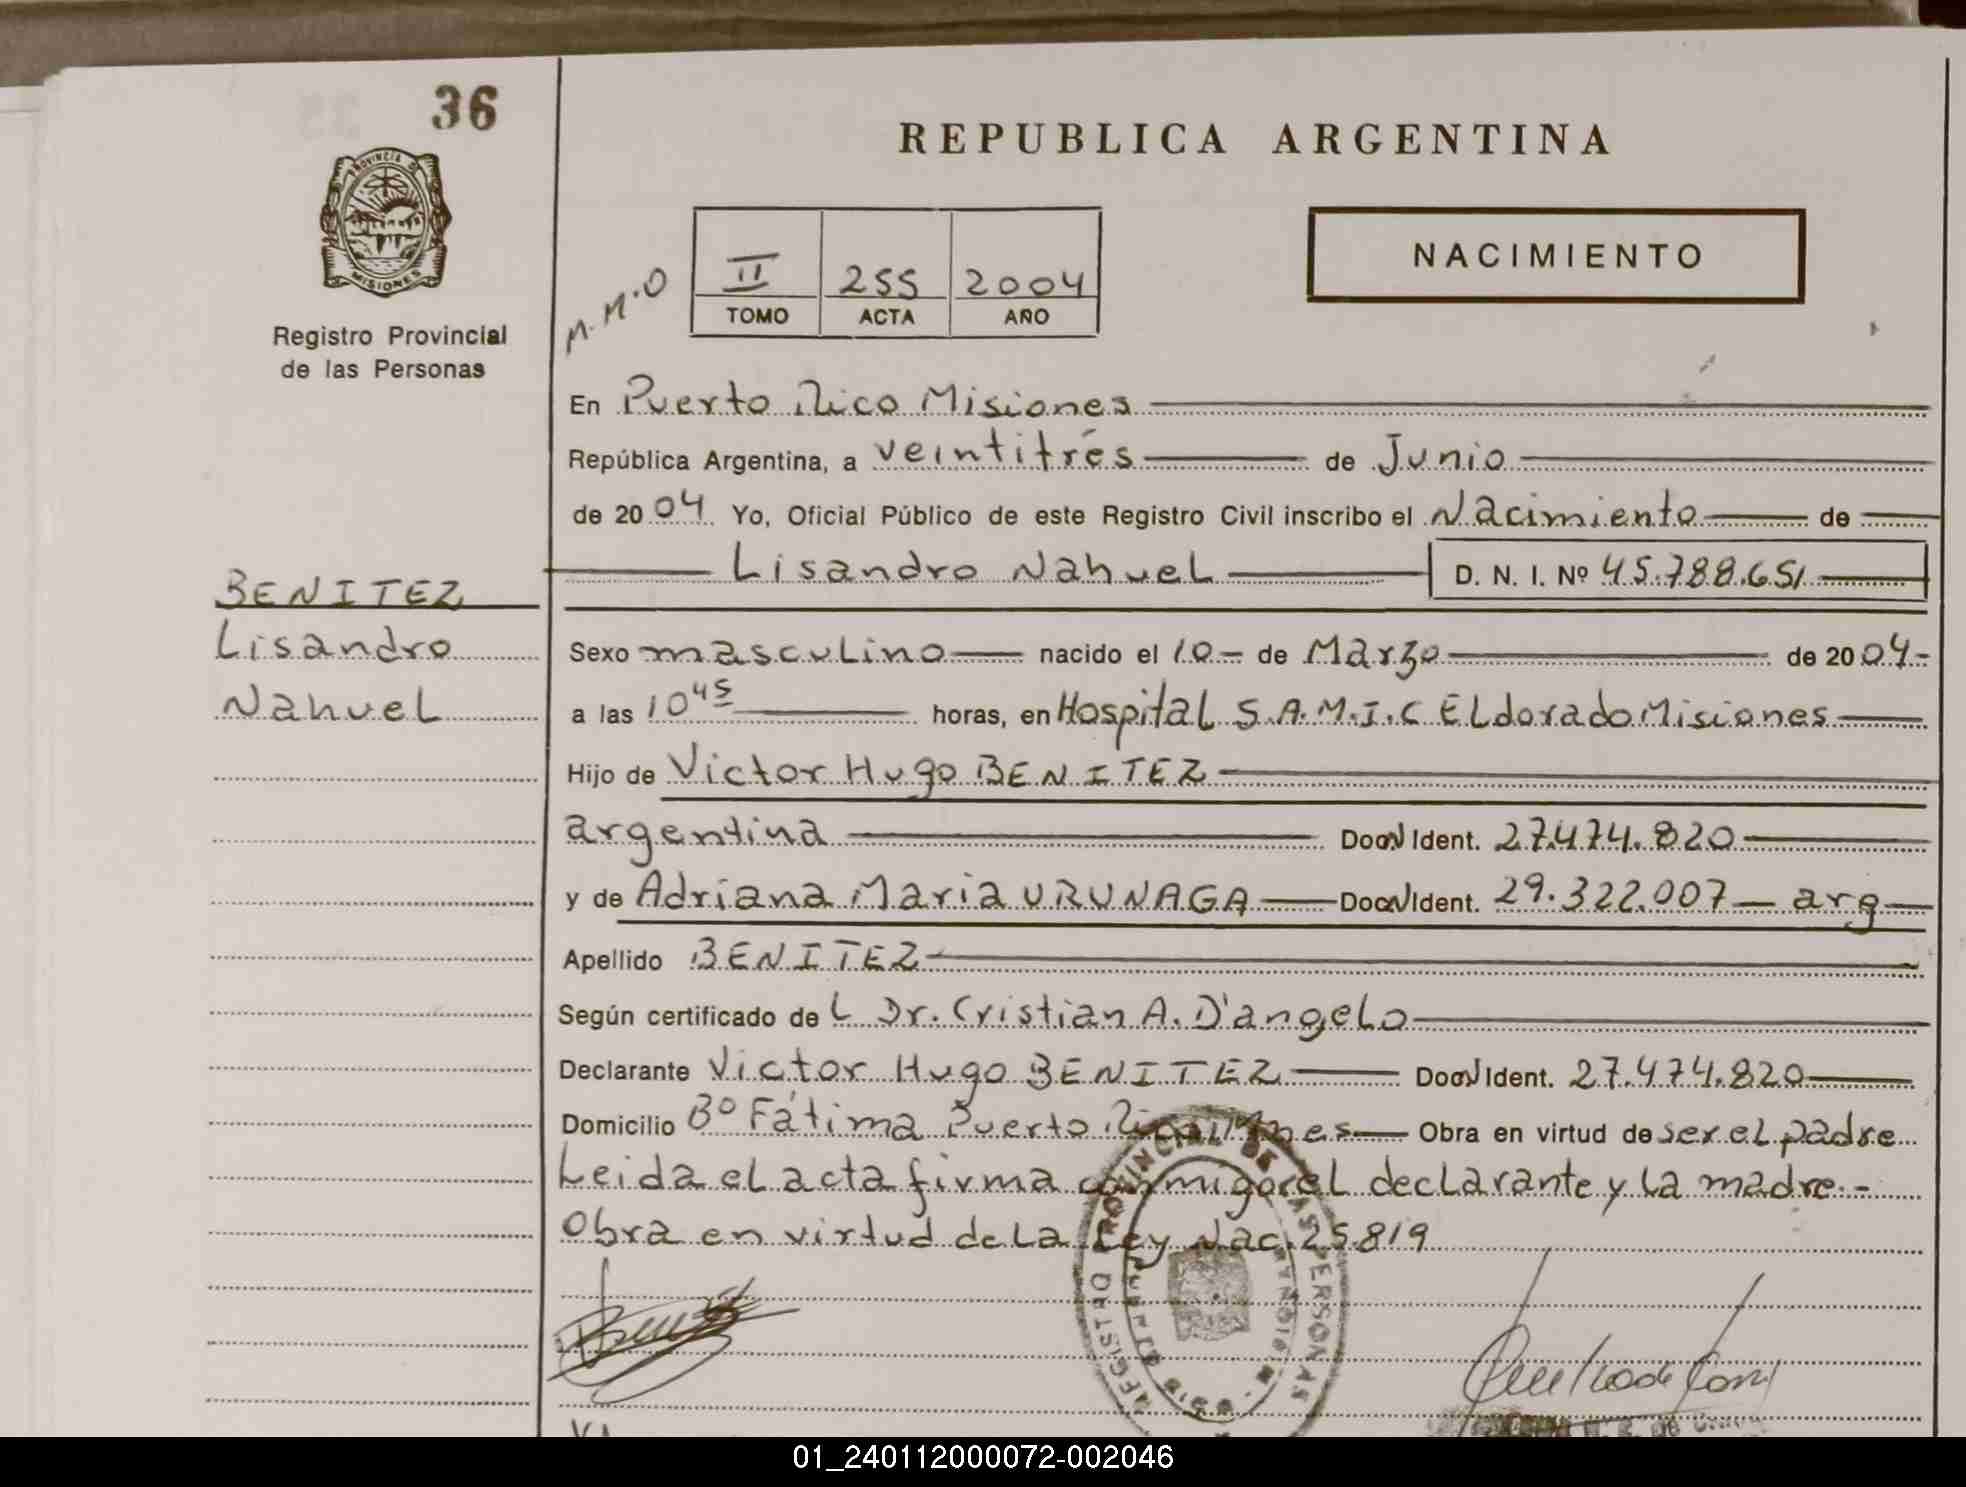 36
REPUBLICA ARGENTINA
PROVINCIA DE
MISIONES
Registro Provincial
de las Personas
M.M.O
II 255 2004
TOMO ACTA AÑO
NACIMIENTO
En Puerto Rico Misiones
República Argentina, a veintitrés de Junio
de 2004 Yo, Oficial Público de este Registro Civil inscribo el Nacimiento de
Lisandro Nahuel D. N. I. Nº 45.788.651
BENITEZ
Lisandro
Nahuel
Sexo masculino nacido el 10 de Marzo de 2004
a las 10 45 horas, en Hospital S.A.M.I.C Eldorado Misiones
Hijo de Victor Hugo BENITEZ
argentina Ident. 27.474.820
y de Adriana Maria URUNAGA Ident. 29.322.007 arg
Apellido BENITEZ
Según certificado de L Dr. Cristian A. D'angelo
Declarante Victor Hugo BENITEZ Ident. 27.474.820
Domicilio Bº Fátima Puerto Rico Obra en virtud de ser el padre
Leida el acta firma conmigo el declarante y la madre.-
Obra en virtud de La Ley Nac. 25.819
REGISTRO PROVINCIAL DE LAS PERSONAS
01_240112000072-002046